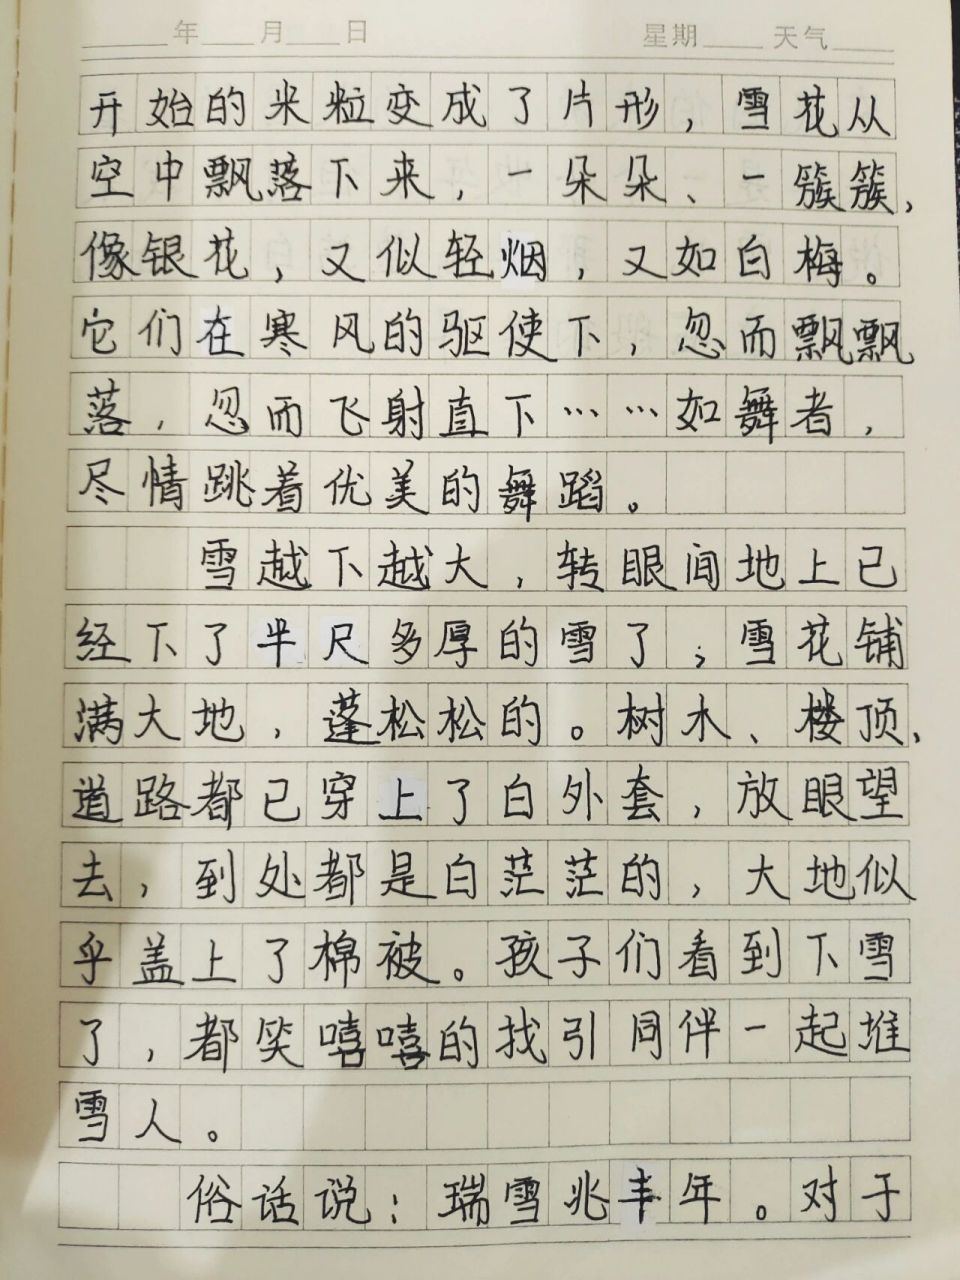 年 月 日 星期 天气
开始的米粒变成了片形，雪花从
空中飘落下来，一朵朵、一簇簇，
像银花，又似轻烟，又如白梅。
它们在寒风的驱使下，忽而飘飘
落，忽而飞射直下……如舞者，
尽情跳着优美的舞蹈。
雪越下越大，转眼间地上已
经下了半尺多厚的雪了；雪花铺
满大地，蓬松松的。树木、楼顶、
道路都已穿上了白外套，放眼望
去，到处都是白茫茫的，大地似
乎盖上了棉被。孩子们看到下雪
了，都笑嘻嘻的找引同伴一起堆
雪人。
俗话说：瑞雪兆丰年。对于